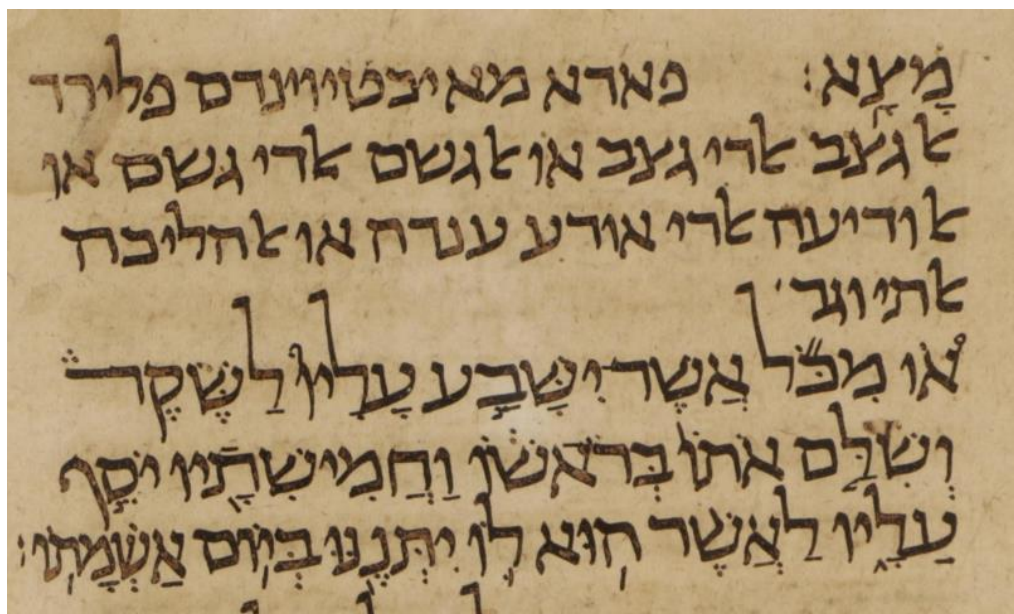 מָצָא׃ פאדא מא יכטי וינדם פלירד
ﭏגצב ﭏדי גצב או ﭏגשם ﭏדי גשם או
ﭏודיעה ﭏדי אודע ענדה או ﭏהליכה
ﭏתי וגד
אוֹ מִכֹּל אֲשֶׁר יִשָּׁבַע עָלָיו לַשֶּׁקֶר
וְשִׁלַּם אֹתוֹ בְּרֹאשׁוֹ וַחֲמִישִׁתָיו יֹסֵף
עָלָיו לַאֲשֶׁר הוּא לוֹ יִתְּנֶנּוּ בְּיוֹם אַשְׁמָתוֹ׃